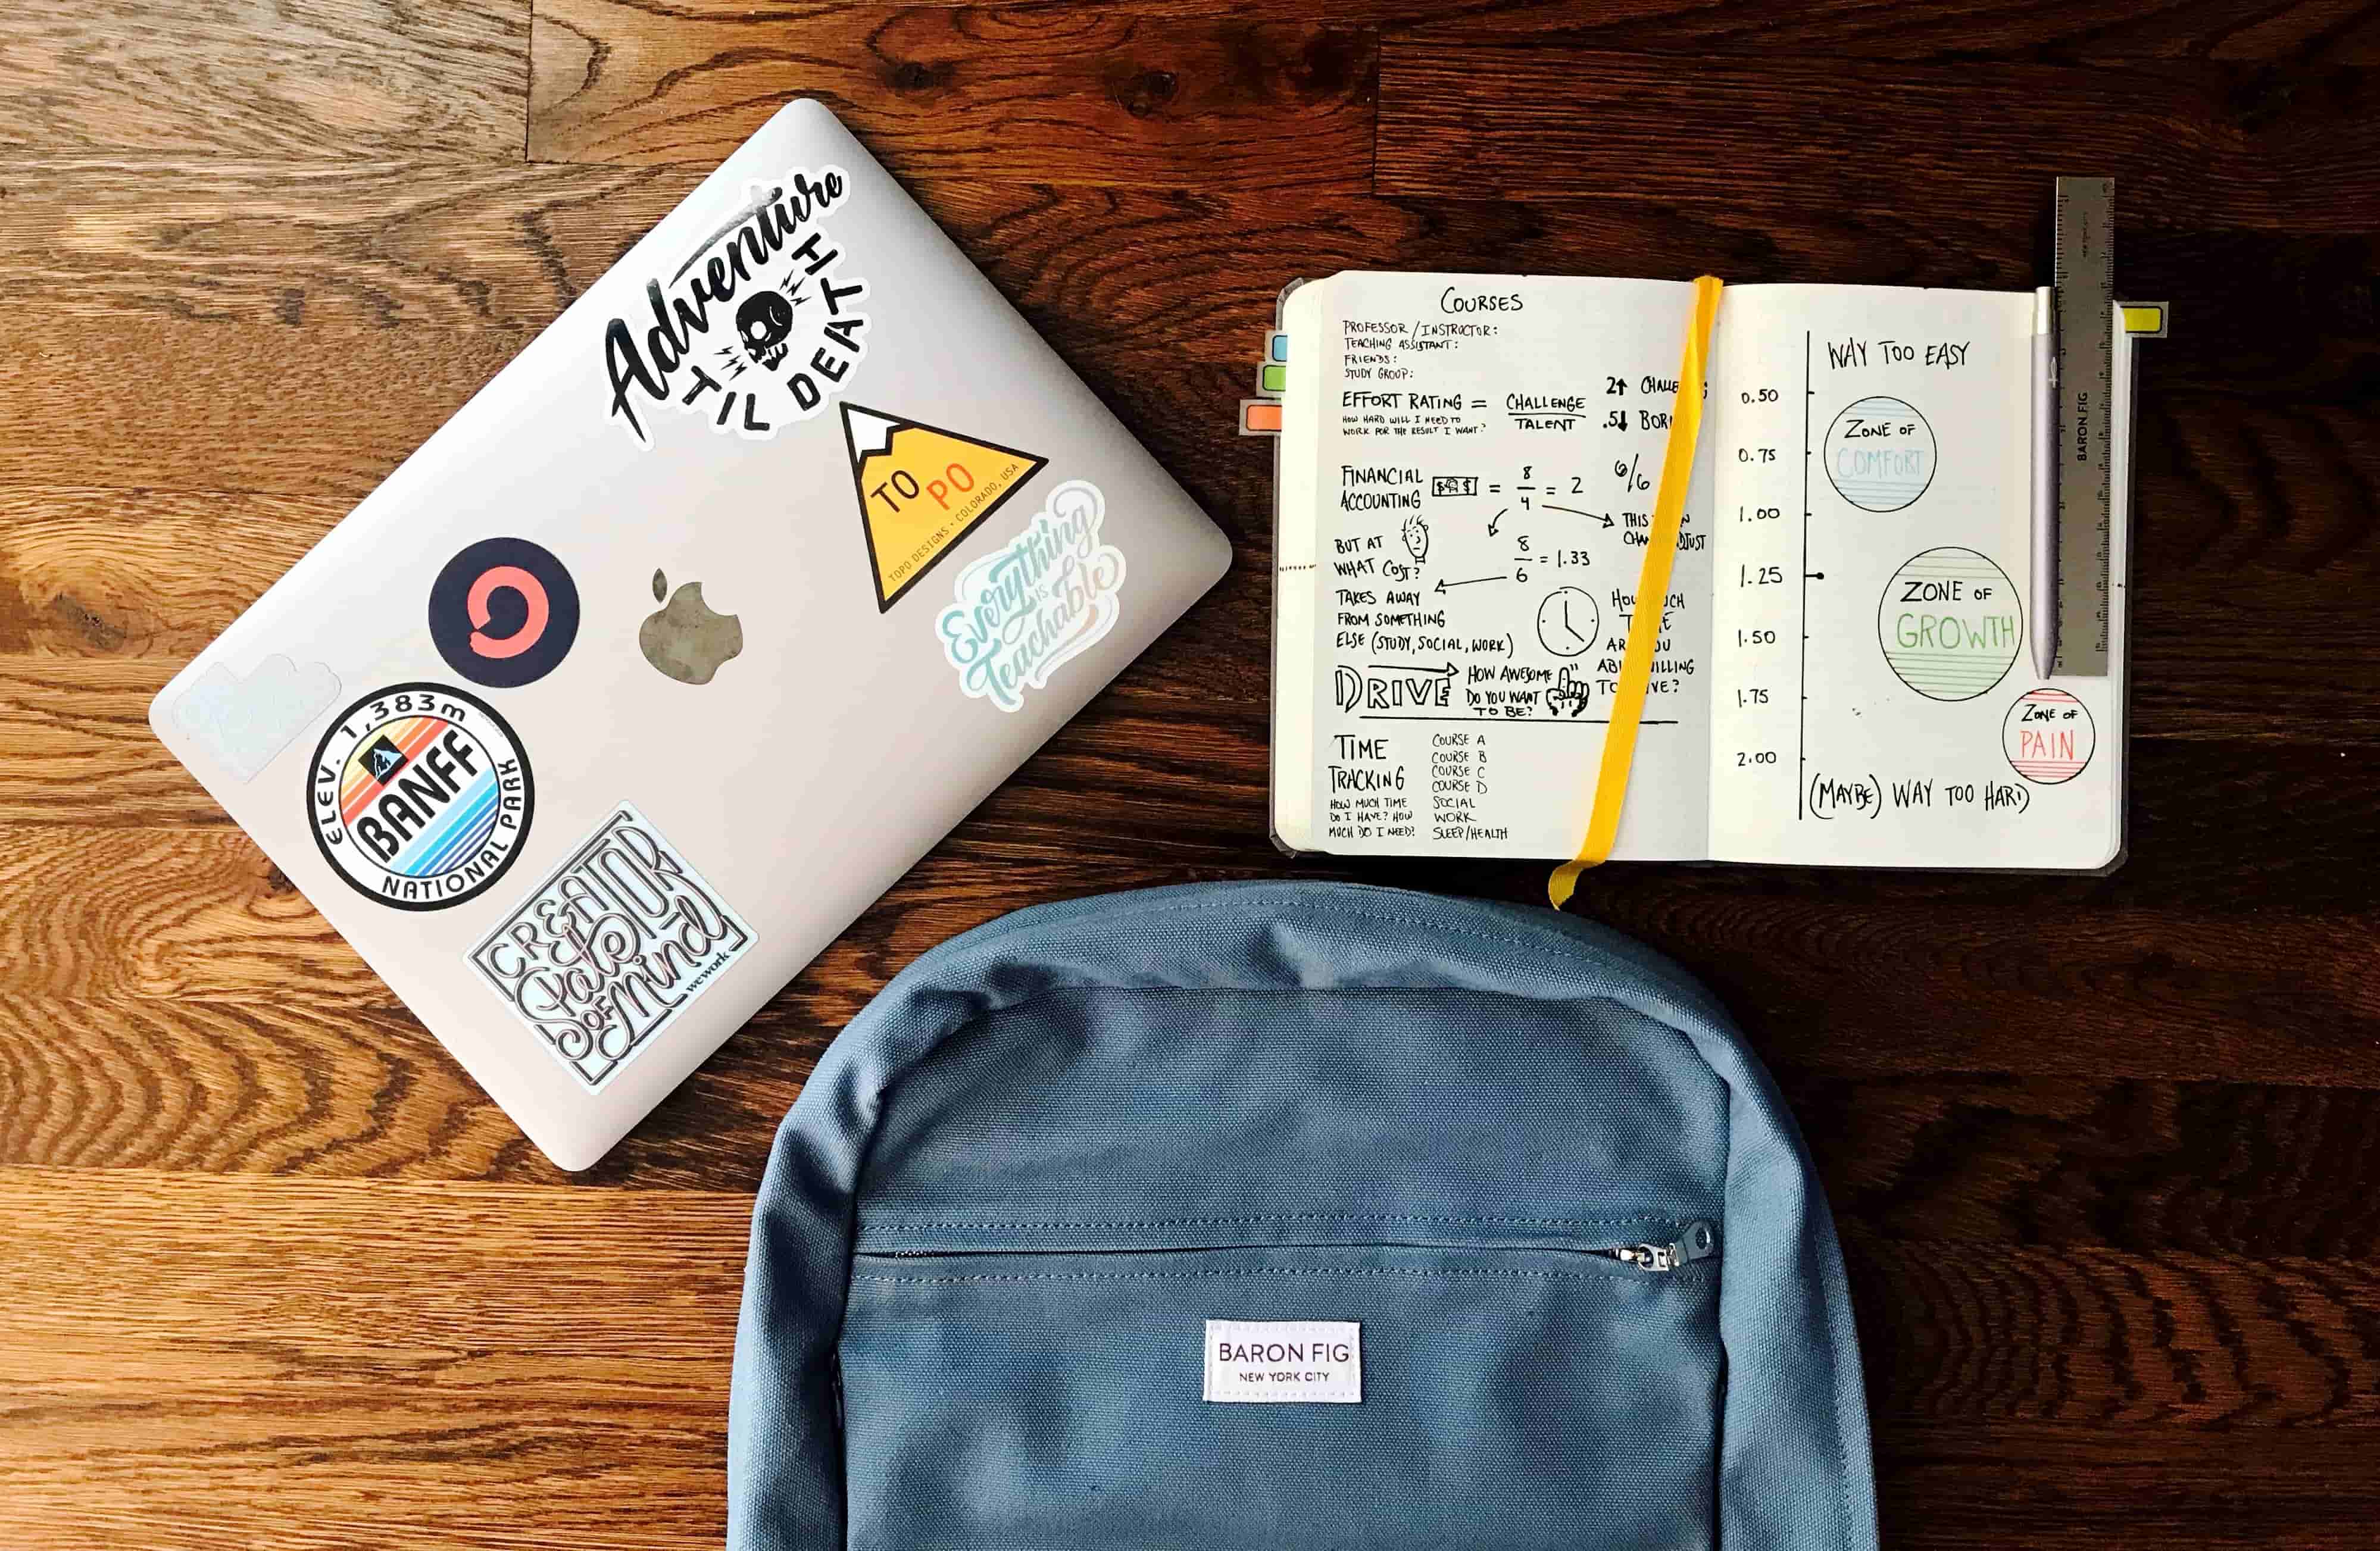 Adventure
TIL DEATH
TO PO
TOPO DESIGNS • COLORADO, USA
Everything
is
Teachable
ELEV. 1,383m
BANFF
NATIONAL PARK
CREATOR
State
OF
Mind
wework
COURSES
PROFESSOR / INSTRUCTOR:
TEACHING ASSISTANT:
FRIENDS:
STUDY GROUP:
EFFORT RATING = CHALLENGE
TALENT
HOW HARD WILL I NEED TO
WORK FOR THE RESULT I WANT?
2↑
.5↓
FINANCIAL
ACCOUNTING $ $ = 8/4 = 2 6/6
THIS
BUT AT
WHAT COST?
8/6 = 1.33
TAKES AWAY
FROM SOMETHING
ELSE (STUDY, SOCIAL, WORK)
DRIVE
HOW AWESOME
DO YOU WANT
TO BE?
TIME
TRACKING
HOW MUCH TIME
DO I HAVE? HOW
MUCH DO I NEED?
COURSE A
COURSE B
COURSE C
COURSE D
SOCIAL
WORK
SLEEP/HEALTH
WAY TOO EASY
0.50
0.75
1.00
1.25
1.50
1.75
2.00
ZONE OF
COMFORT
ZONE OF
GROWTH
ZONE OF
PAIN
(MAYBE) WAY TOO HARD
BARON FIG
BARON FIG
NEW YORK CITY